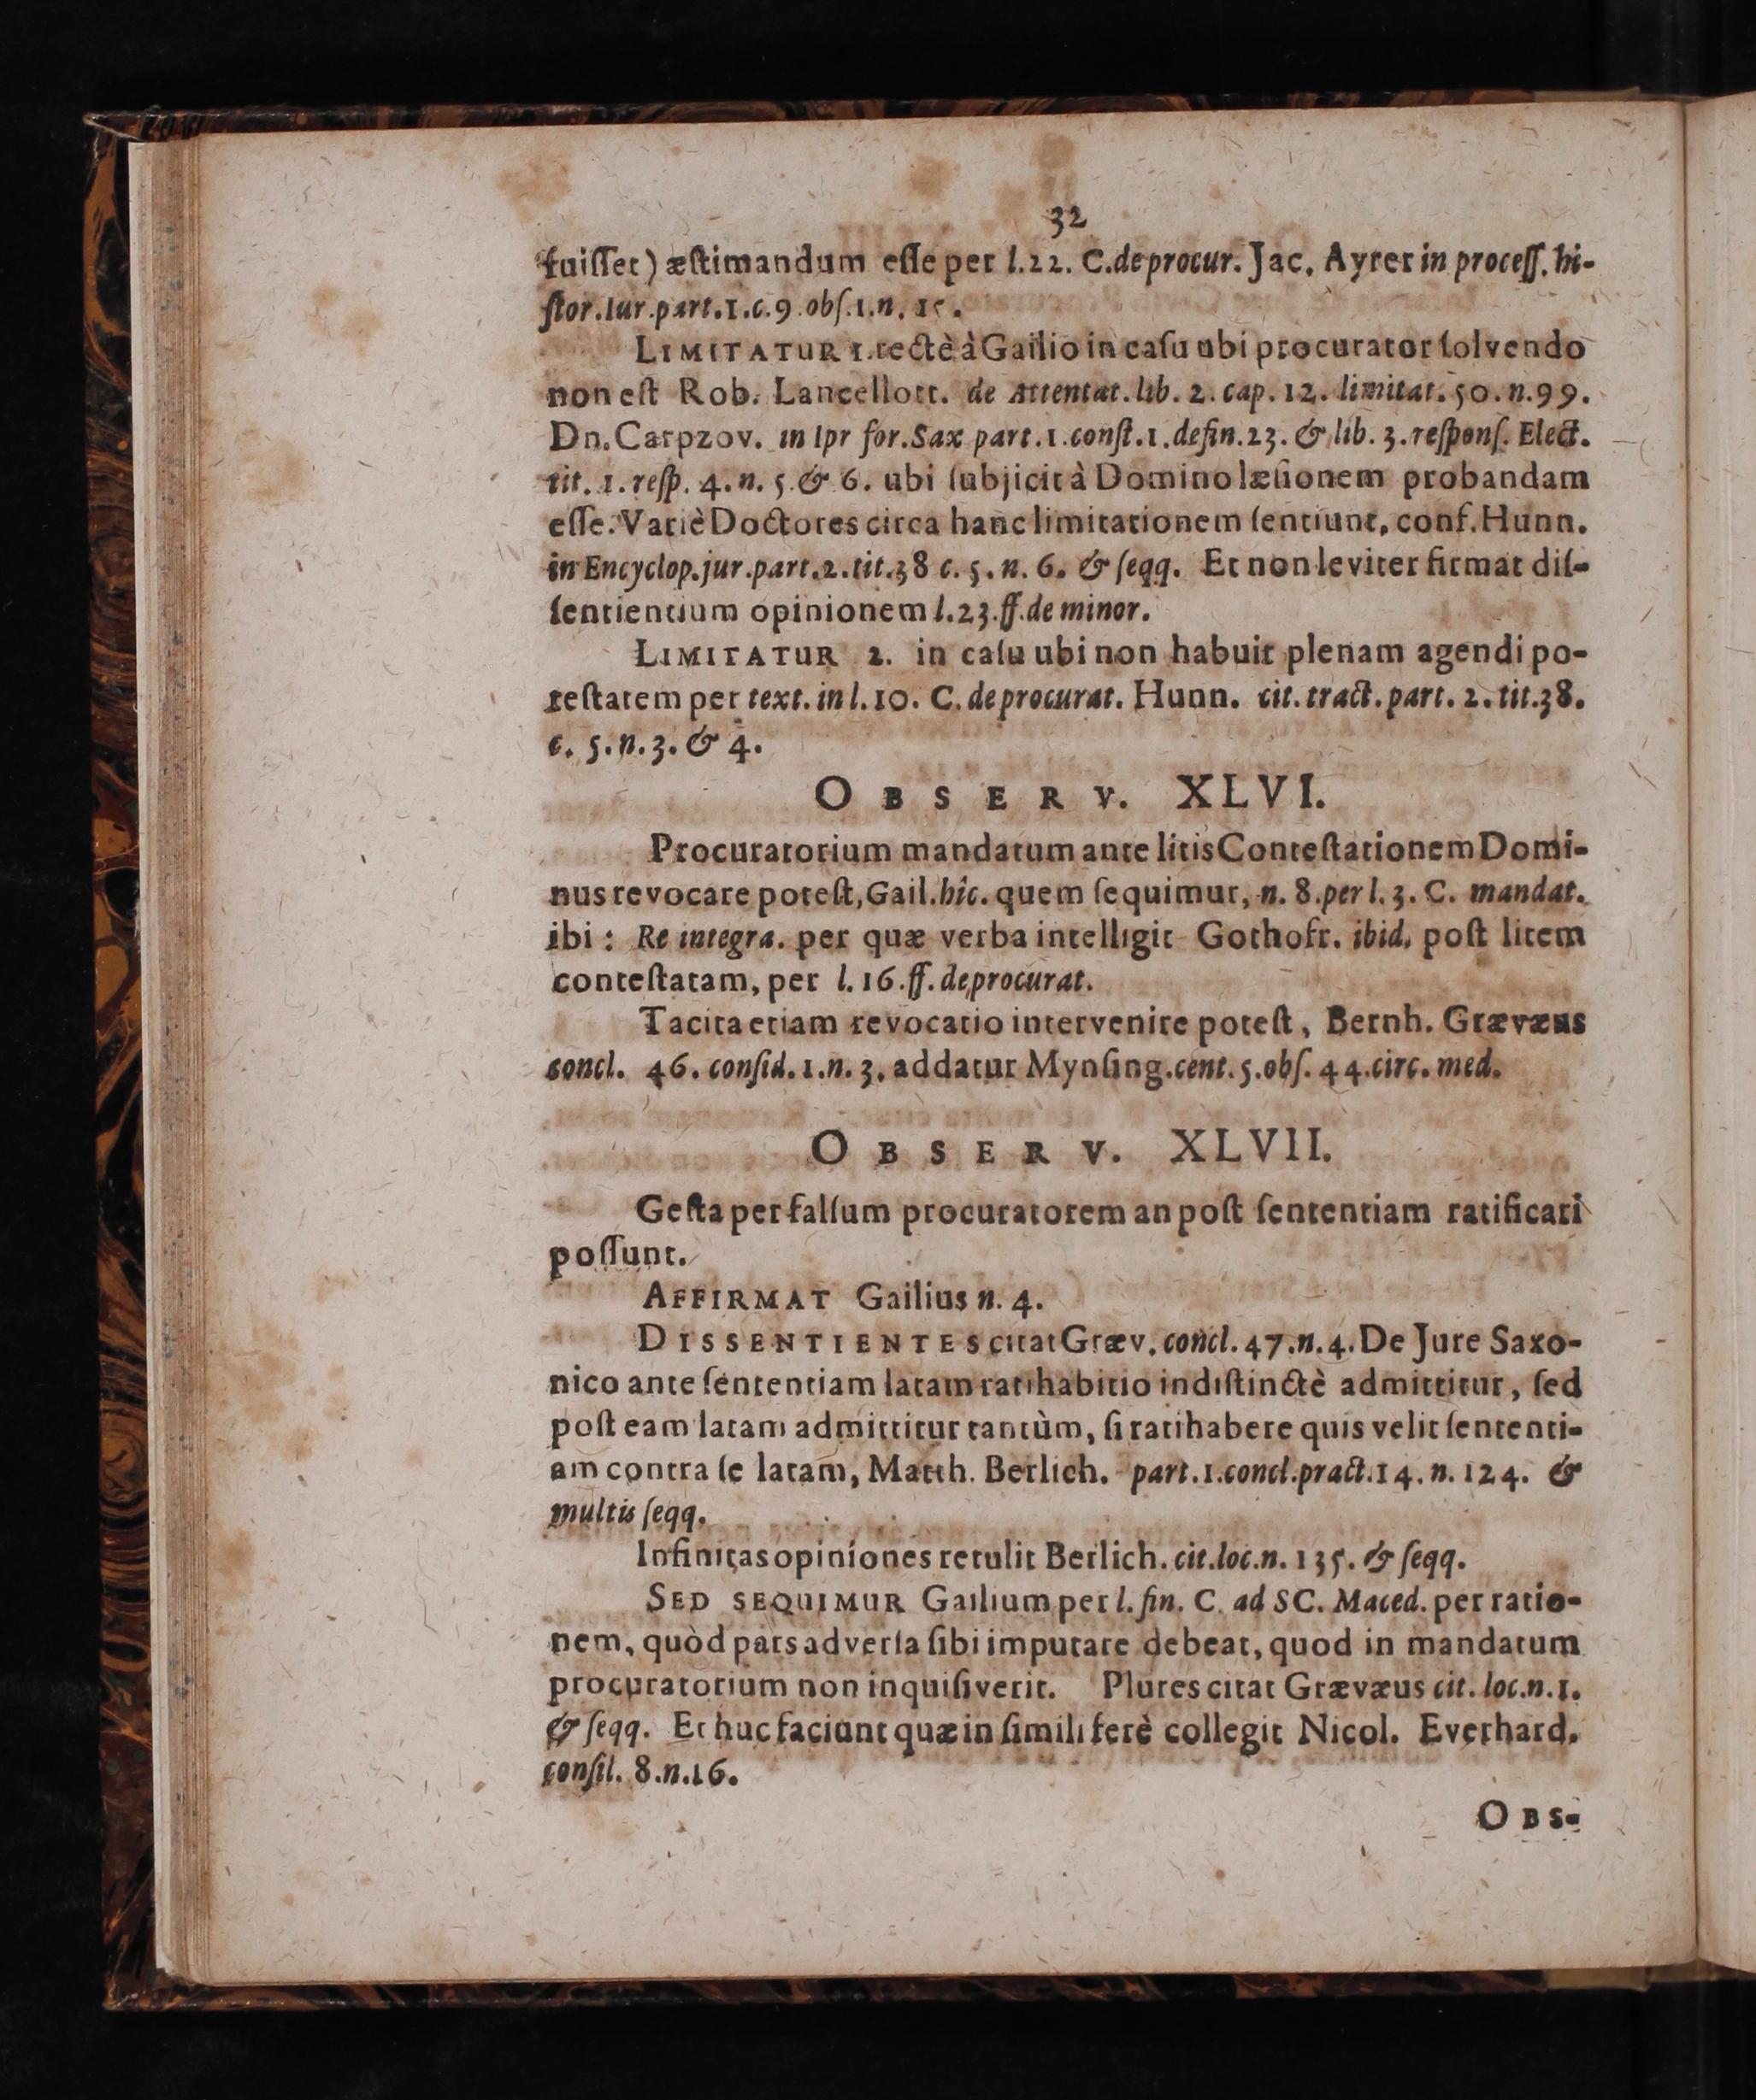 32
fuiſſet) æſtimandum eſſe per l.22. C.de procur. Jac. Ayrer in proceſſ. hi-
ſtor.Iur.part.1.c.9.obſ.1.n.15.
LIMITATUR 1. rectè à Gailio in caſu ubi procurator ſolvendo
non eſt Rob. Lancellott. de Attentat. lib. 2. cap. 12. limitat. 50. n.99.
Dn. Carpzov. in Ipr for. Sax part.1.conſt.1.defin.23. & lib. 3.reſponſ. Elect.
tit. 1. reſp. 4. n. 5. & 6. ubi ſubjicit à Domino læſionem probandam
eſſe. Variè Doctores circa hanc limitationem ſentiunt, conf. Hunn.
in Encyclop.jur.part.2.tit.38 c. 5. n. 6. & ſeqq. Et non leviter firmat diſ-
ſentientium opinionem l.23.ff.de minor.
LIMITATUR 2. in caſu ubi non habuit plenam agendi po-
teſtatem per text. in l. 10. C. de procurat. Hunn. cit. tract. part. 2. tit.38.
c. 5. n. 3. & 4.
OBSERV. XLVI.
Procuratorium mandatum ante litis Conteſtationem Domi-
nus revocare poteſt, Gail. hîc. quem ſequimur, n. 8. per l. 3. C. mandat.
ibi: Re integra. per quæ verba intelligit Gothofr. ibid. poſt litem
conteſtatam, per l. 16.ff. de procurat.
Tacita etiam revocatio intervenire poteſt, Bernh. Grævæus
concl. 46. conſid. 1. n. 3. addatur Mynſing. cent. 5. obſ. 44. circ. med.
OBSERV. XLVII.
Geſta per falſum procuratorem an poſt ſententiam ratificari
poſſunt.
AFFIRMAT Gailius n. 4.
DISSENTIENTES citat Græv. concl. 47. n. 4. De Jure Saxo-
nico ante ſententiam latam ratihabitio indiſtinctè admittitur, ſed
poſt eam latam admittitur tantùm, ſi ratihabere quis velit ſententi-
am contra ſe latam, Matth. Berlich. part. 1. concl. pract. 14. n. 124. &
multis ſeqq.
Infinitas opiniones retulit Berlich. cit. loc. n. 135. & ſeqq.
SED SEQUIMUR Gailium per l. fin. C. ad SC. Maced. per ratio-
nem, quòd pars adverſa ſibi imputare debeat, quod in mandatum
procuratorium non inquiſiverit. Plures citat Grævæus cit. loc. n. 1.
& ſeqq. Et huc faciunt quæ in ſimili ferè collegit Nicol. Everhard.
conſil. 8. n. 16.
OBS-